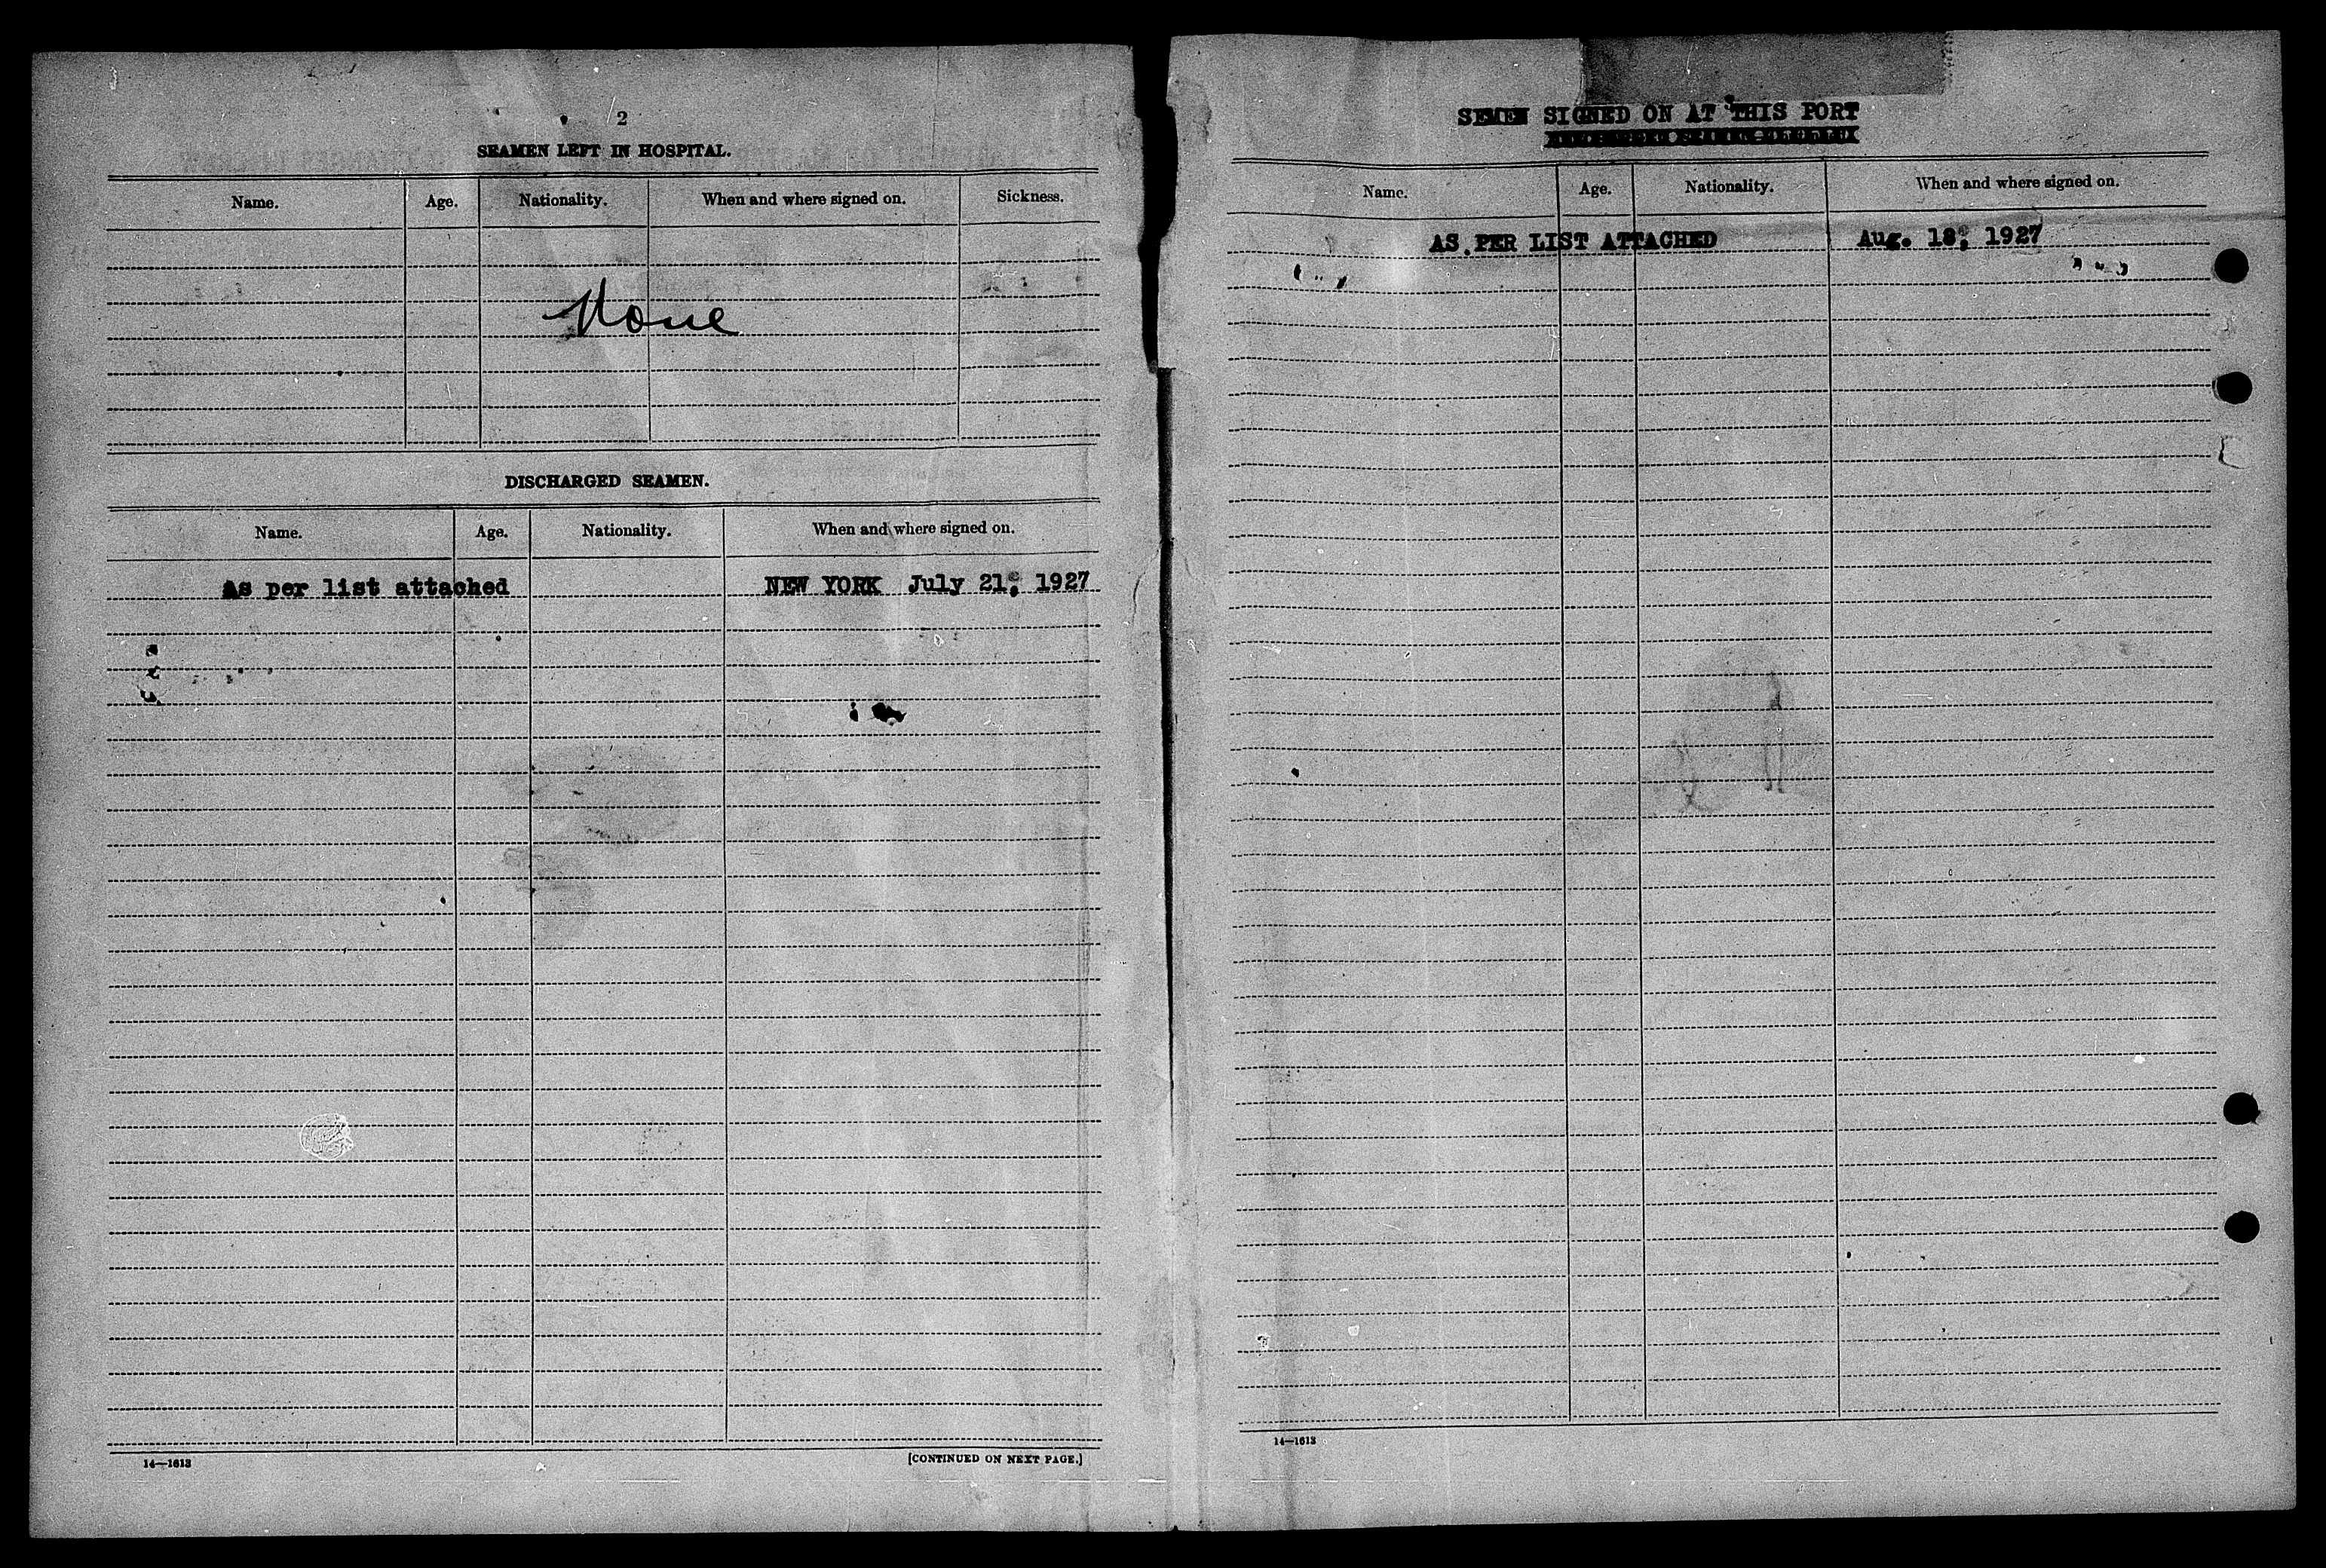 2
SEAMEN LEFT IN HOSPITAL.
Name. Age. Nationality. When and where signed on. Sickness.
None
DISCHARGED SEAMEN.
Name. Age. Nationality. When and where signed on.
As per list attached NEW YORK July 21, 1927
14—1613 [CONTINUED ON NEXT PAGE.]
SEMEN SIGNED ON AT THIS PORT
Name. Age. Nationality. When and where signed on.
AS PER LIST ATTACHED Aug. 18, 1927
14—1613